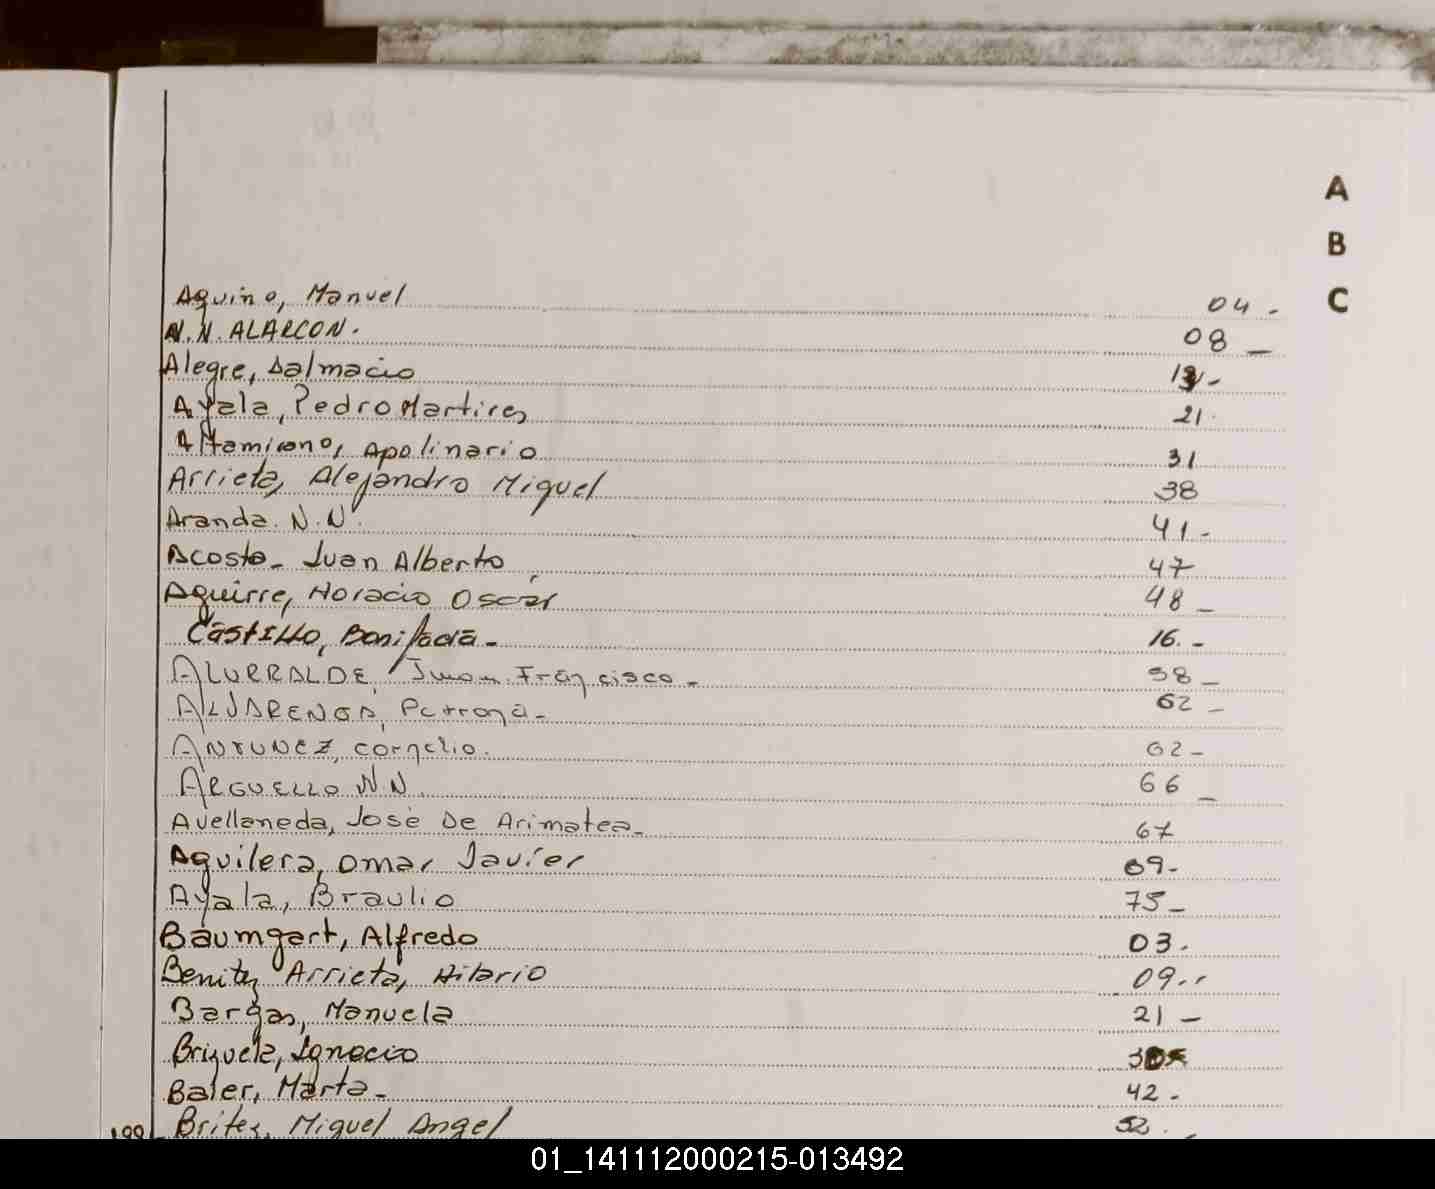 A
B
C
Aquino, Manuel 04 -
N.N. ALARCON. 08 -
Alegre, Dalmacio -
Ayala, Pedro Martires 21.
Altamirano, Apolinario 31
Arrieta, Alejandro Miguel 38
Aranda. N.N. 41 -
Acosta - Juan Alberto 47
Aguirre, Horacio Oscar 48 -
CastILLO, Bonifacia - 16. -
ALURRALDE, Juan Francisco - 58 -
ALJARENGA, Petrona - 62 -
ANTUNEZ, cornelio. 62 -
ARGUELLO N.N. 66 -
Avellaneda, José De Arimatea - 67
Aguilera, Omar Javier 69 -
Ayala, Braulio 75 -
Baumgart, Alfredo 03.
Benitez Arrieta, Hilario 09..
Bargas, Manuela 21 -
Brizuela, Ignacio
Baier, Marta - 42 -
Britez, Miguel Angel 52.
01_141112000215-013492